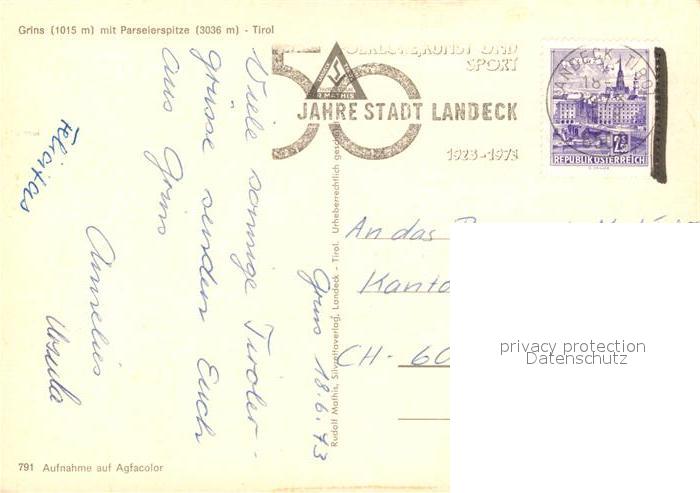 Grins (1015 m) mit Parseierspitze (3036 m) - Tirol
KUNST UND
SPORT
50
R. MATHIS
JAHRE STADT LANDECK
1923-1973
LANDECK, TIROL
18
REPUBLIK ÖSTERREICH
Viele sonnige Tiroler-
grüsse senden Euch
aus Grins
Annelies
Ursula
Felicitas
Grins 18.6.73
Rudolf Mathis, Silvrettaverlag, Landeck - Tirol. Urheberrechtlich gesch
An das
Kanto
CH - 60
privacy protection
Datenschutz
791 Aufnahme auf Agfacolor